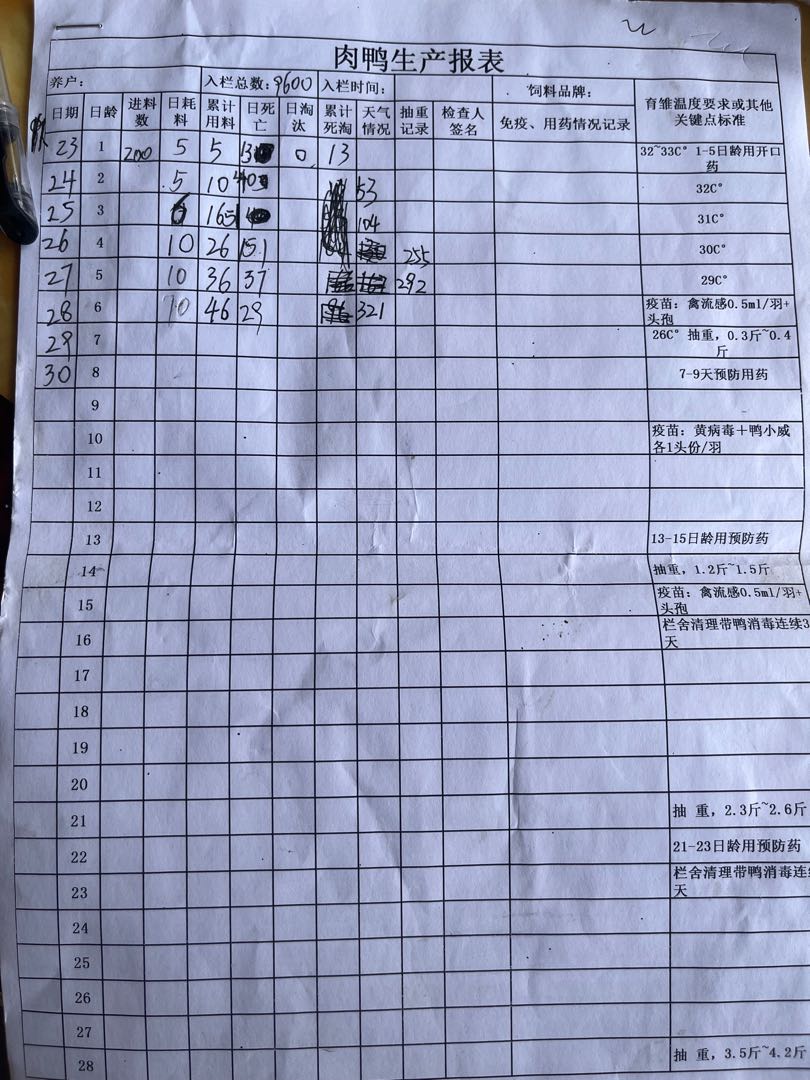 肉鸭生产报表
养户： 入栏总数：9600 入栏时间： 饲料品牌：
日期 日龄 进料数 日耗料 累计用料 日死亡 日淘汰 累计死淘 天气情况 抽重记录 检查人签名 免疫、用药情况记录 育雏温度要求或其他关键点标准
23 1 200 5 5 13 0 13 32~33C° 1-5日龄用开口药
24 2 5 10 40 53 32C°
25 3 6 16 51 104 31C°
26 4 10 26 151 255 30C°
27 5 10 36 37 292 29C°
28 6 10 46 29 321 疫苗：禽流感0.5ml/羽+头孢
29 7 26C° 抽重，0.3斤~0.4斤
30 8 7-9天预防用药
9
10 疫苗：黄病毒＋鸭小威各1头份/羽
11
12
13 13-15日龄用预防药
14 抽重，1.2斤~1.5斤
15 疫苗：禽流感0.5ml/羽+头孢
16 栏舍清理带鸭消毒连续3天
17
18
19
20
21 抽 重，2.3斤~2.6斤
22 21-23日龄用预防药
23 栏舍清理带鸭消毒连 天
24
25
26
27
28 抽 重，3.5斤~4.2斤